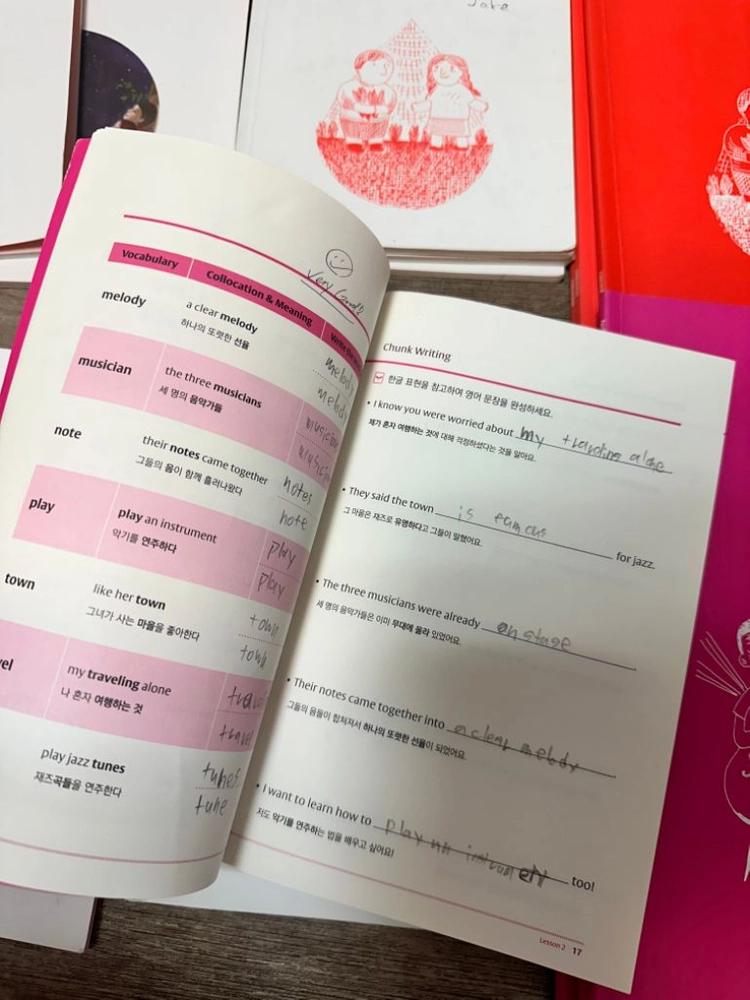 Jake
Very Good!
Vocabulary Collocation & Meaning Write the
melody
a clear melody
하나의 또렷한 선율
melody
melody
musician
the three musicians
세 명의 음악가들
musician
musici
note
their notes came together
그들의 음이 함께 흘러나왔다
notes
note
play
play an instrument
악기를 연주하다
play
play
town
like her town
그녀가 사는 마을을 좋아한다
town
town
vel
my traveling alone
나 혼자 여행하는 것
travel
travel
play jazz tunes
재즈곡들을 연주한다
tunes
tune
Chunk Writing
한글 표현을 참고하여 영어 문장을 완성하세요.
• I know you were worried about my traveling alone
제가 혼자 여행하는 것에 대해 걱정하셨다는 것을 알아요.
• They said the town is famous for jazz.
그 마을은 재즈로 유명하다고 그들이 말했어요.
• The three musicians were already on stage
세 명의 음악가들은 이미 무대에 올라 있었어요.
• Their notes came together into a clear melody
그들의 음들이 합쳐져서 하나의 또렷한 선율이 되었어요.
• I want to learn how to play an too!
저도 악기를 연주하는 법을 배우고 싶어요!
Lesson 2 17